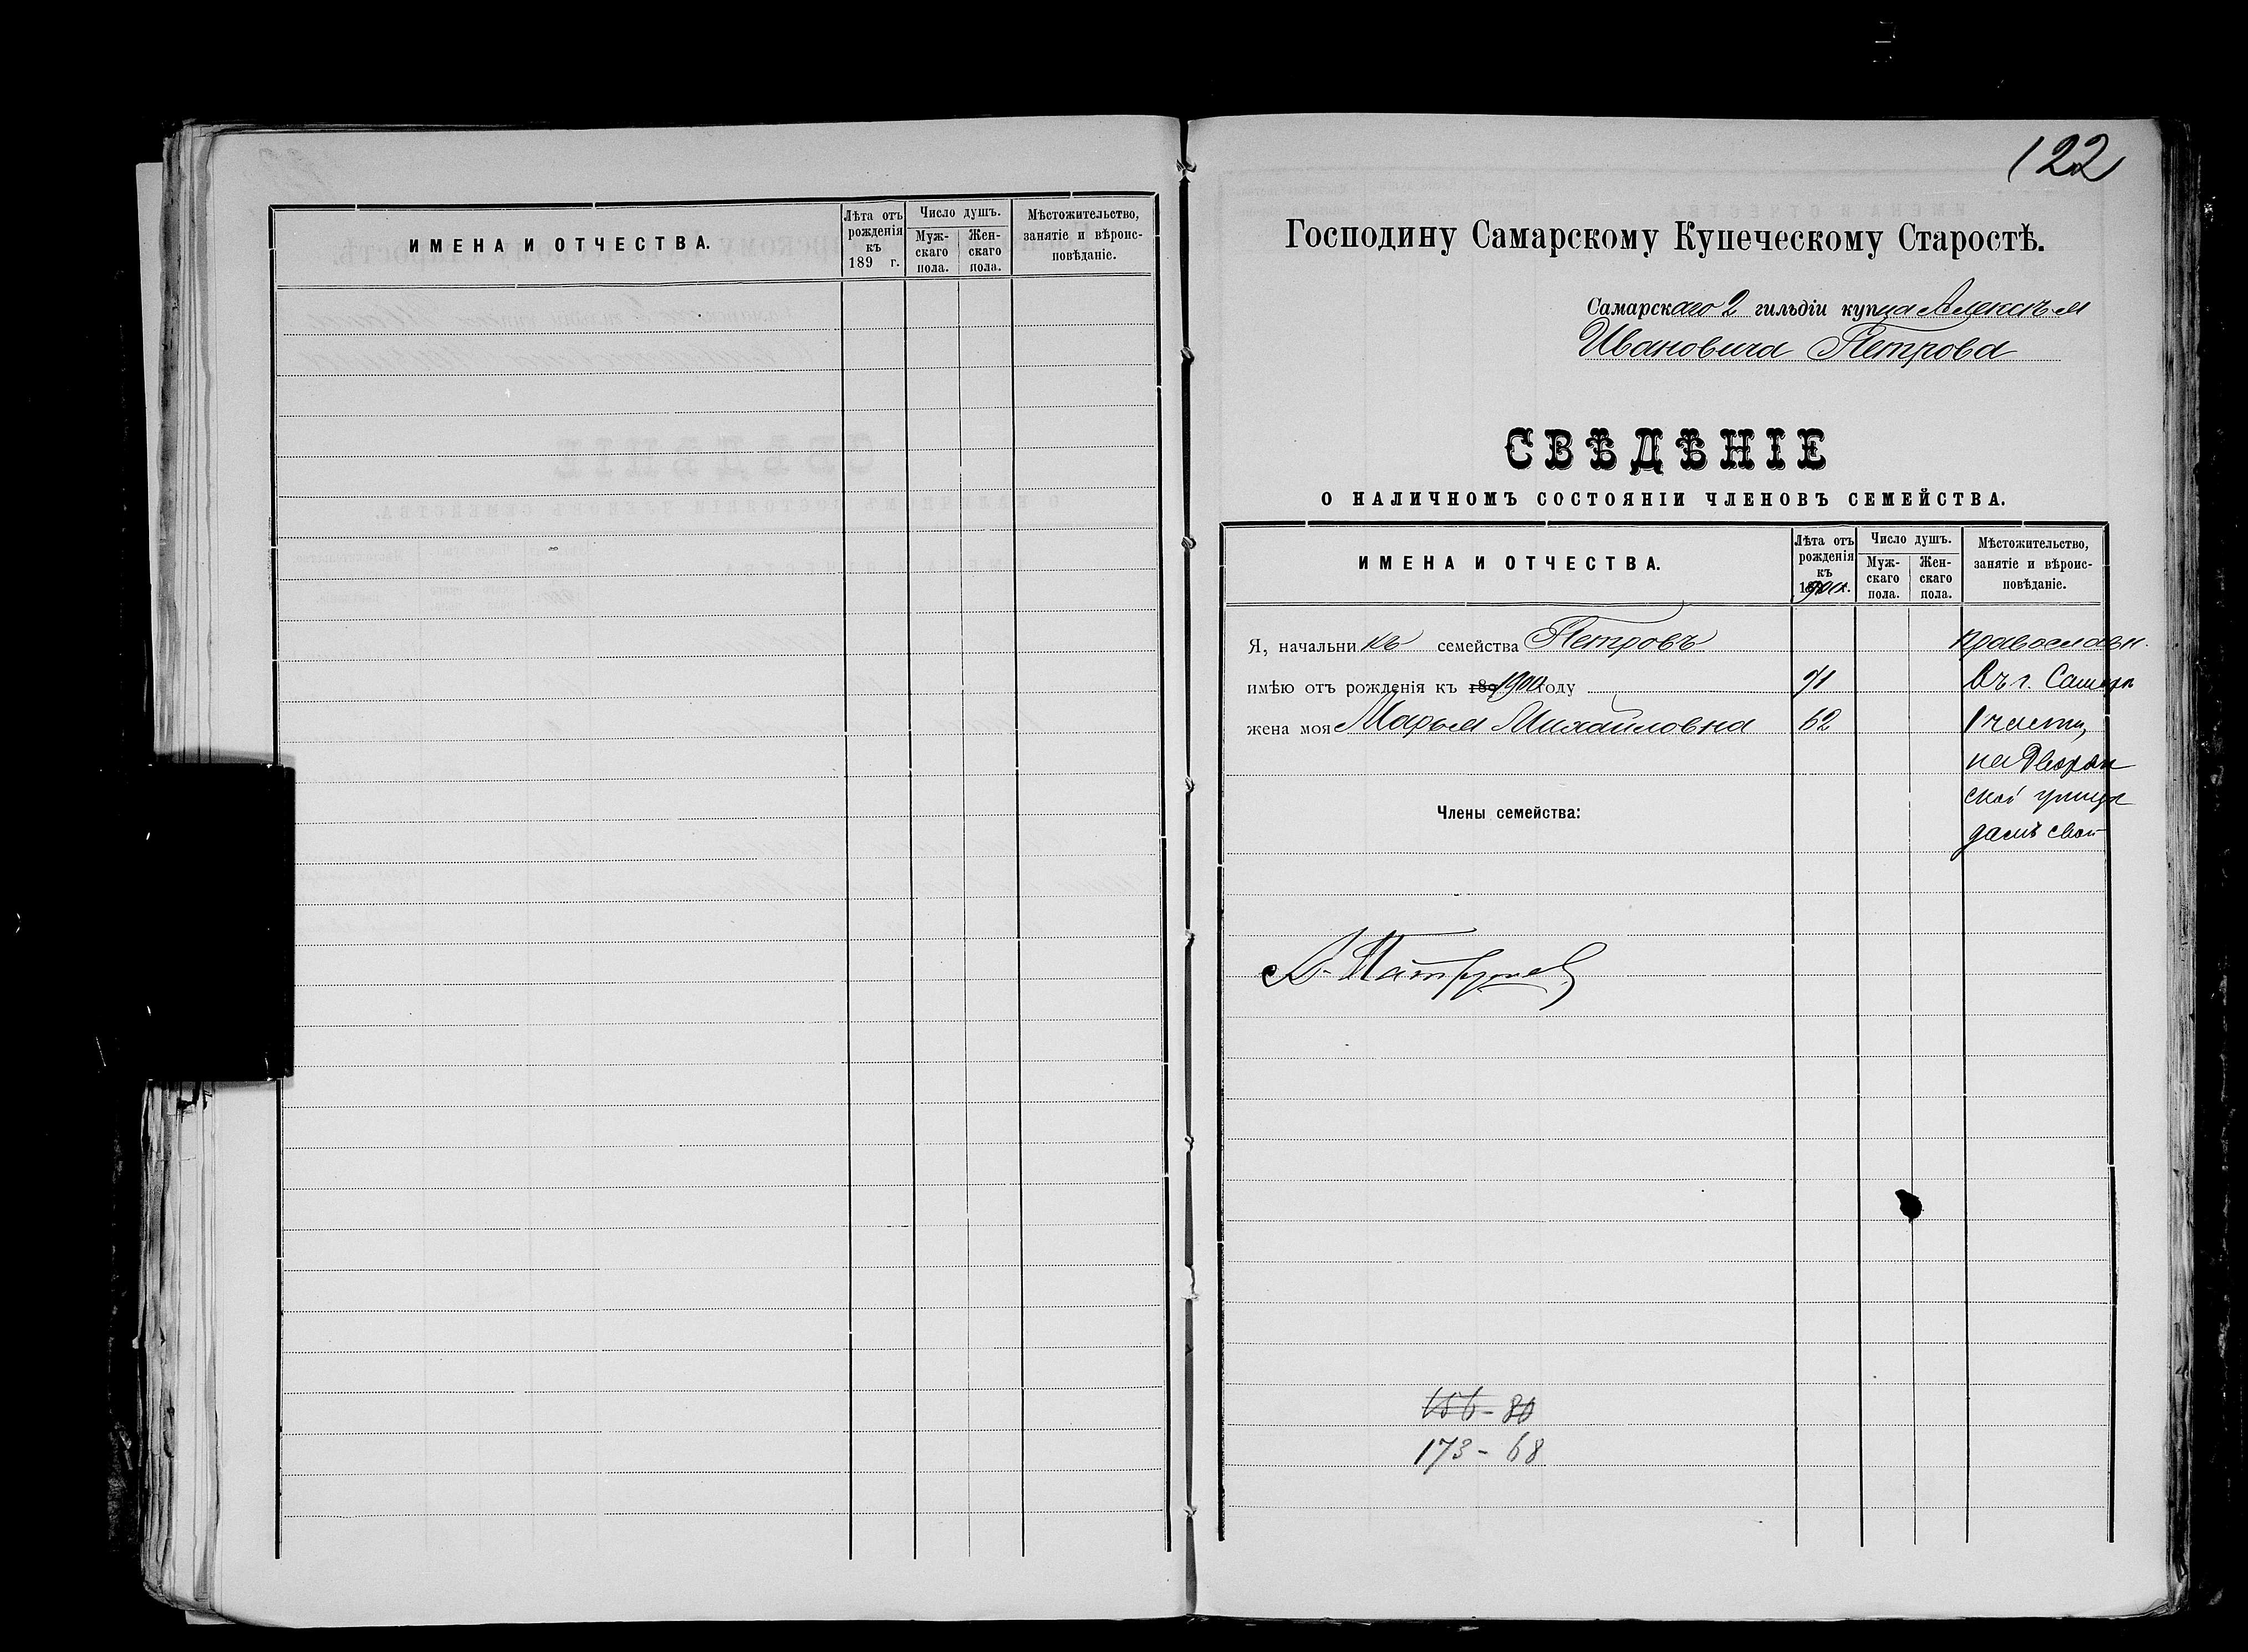 ИМЕНА И ОТЧЕСТВА.
Лѣта отъ
рожденія
къ
189 г.
Число душъ.
Муж-
скаго
пола.
Жен-
скаго
пола.
Мѣстожительство,
занятіе и вѣроис-
повѣданіе.
122
Господину Самарскому Купеческому Старостѣ.
Самарскаго 2 гильдіи купца Алексѣя
Ивановича Петрова
СВѢДѢНІЕ
О НАЛИЧНОМЪ СОСТОЯНІИ ЧЛЕНОВЪ СЕМЕЙСТВА.
ИМЕНА И ОТЧЕСТВА.
Лѣта отъ
рожденія
къ
1900 г.
Число душъ.
Муж-
скаго
пола.
Жен-
скаго
пола.
Мѣстожительство,
занятіе и вѣроис-
повѣданіе.
Я, начальникъ семейства Петровъ православн.
имѣю отъ рожденія къ 189 1900 году 71 Въ г. Самарѣ
жена моя Марья Михайловна 62 1 части,
на Дворян
ской улицѣ
Члены семейства:
домъ свой
156 - 80
173 - 68